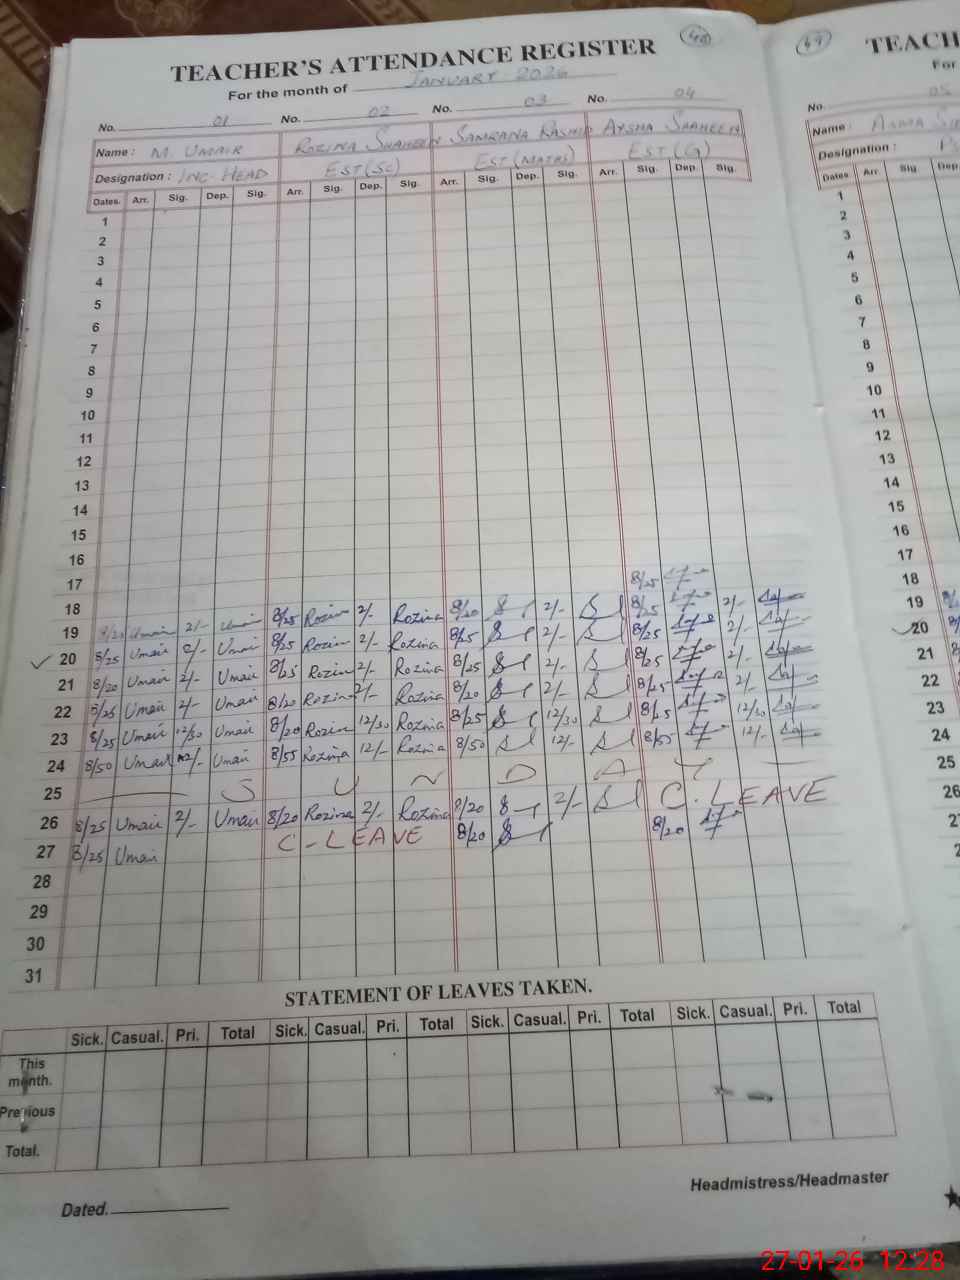 TEACHER'S ATTENDANCE REGISTER 48
For the month of JANUARY 2026
No. 01 No. 02 No. 03 No. 04
Name : M. UMAIR ROZINA SHAHEEN SAMRANA RASHID AYSHA SHAHEEN
Designation : INC. HEAD EST(SC) EST(MATHS) EST(G)
Dates. Arr. Sig. Dep. Sig. Arr. Sig. Dep. Sig. Arr. Sig. Dep. Sig. Arr. Sig. Dep. Sig.
1
2
3
4
5
6
7
8
9
10
11
12
13
14
15
16
17 8/25
18 8/25 Rozina 2/- Rozina 8/20 2/- 8/25 2/-
19 8/20 Umair 2/- Umair 8/25 Rozina 2/- Rozina 8/15 2/- 8/25 2/-
20 8/25 Umair 2/- Umair 8/25 Rozina 2/- Rozina 8/25 2/- 8/25 2/-
21 8/20 Umair 2/- Umair 8/20 Rozina 2/- Rozina 8/20 2/- 8/25 2/-
22 8/25 Umair 2/- Umair 8/20 Rozina 12/30 Rozina 8/25 12/30 8/25 12/30
23 8/25 Umair 12/30 Umair 8/55 Rozina 12/- Rozina 8/50 12/- 8/55 12/-
24 8/50 Umair 12/- Umair
25 SUNDAY
26 8/25 Umair 2/- Umair 8/20 Rozina 2/- Rozina 8/20 2/- C. LEAVE
27 8/25 Umair C-LEAVE 8/20 8/20
28
29
30
31
STATEMENT OF LEAVES TAKEN.
Sick. Casual. Pri. Total Sick. Casual. Pri. Total Sick. Casual. Pri. Total Sick. Casual. Pri. Total
This
month.
Previous
Total.
Dated. Headmistress/Headmaster
49
TEACH
For
No. 05
Name : ASMA
Designation :
Dates Arr. Sig. Dep
1
2
3
4
5
6
7
8
9
10
11
12
13
14
15
16
17
18
19
20
21
22
23
24
25
26
27-01-26 12:28